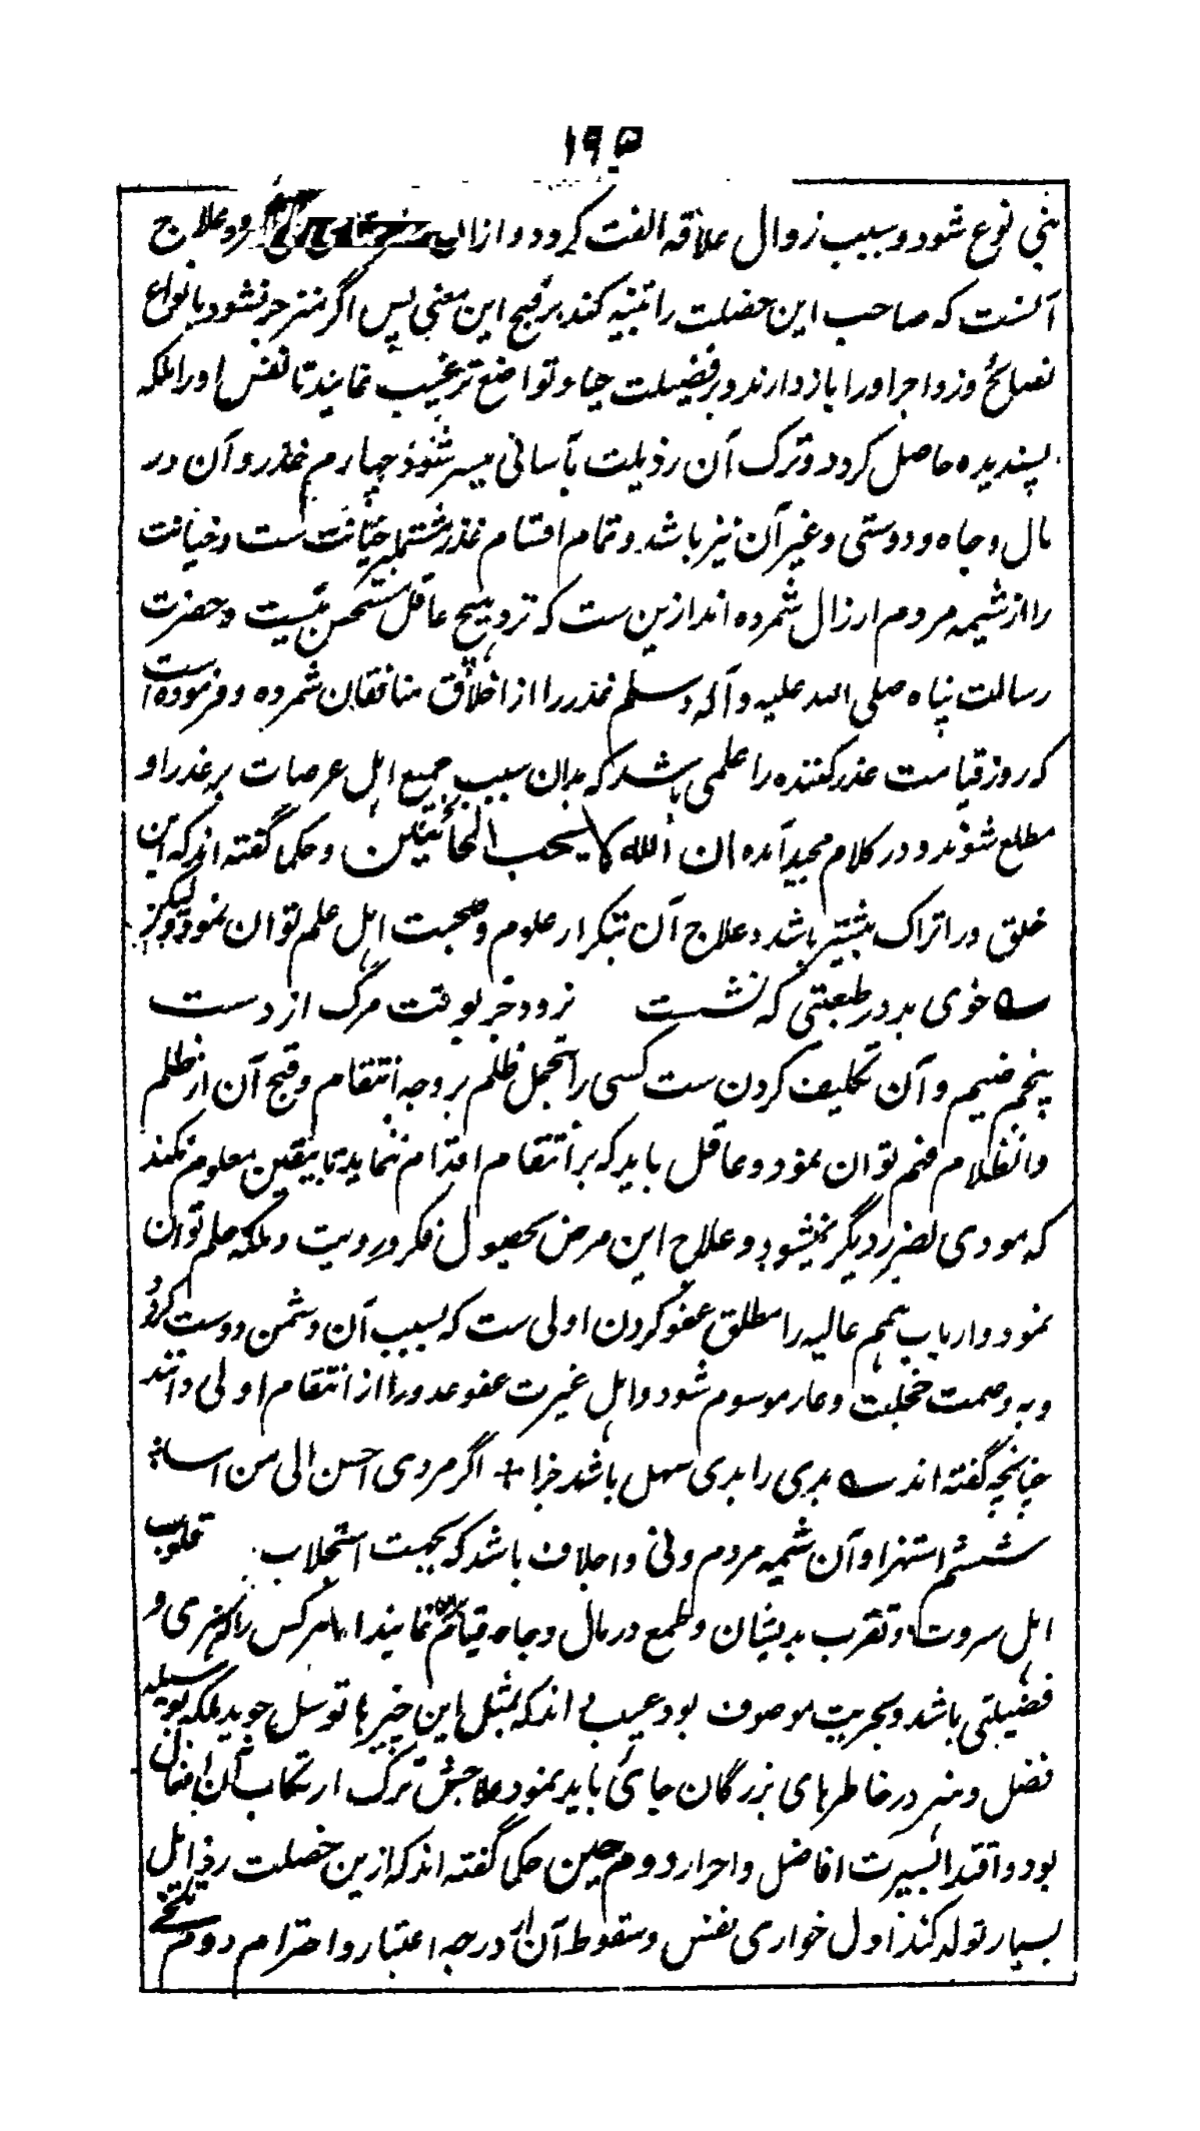 ۱۹۵
بنی نوع شود و سبب زوال علاقه الفت گردد و ازان رود علاج
آنست که صاحب این خصلت را تنبیه کند بر قبح این معنی پس اگر منزجر نشود بانواع
نصائح و زواجر او را باز دارند و بر فضیلت حیا و تواضع ترغیب نمایند تا نفس او را ملکه
پسندیده حاصل گردد و ترک آن رذیلت بآسانی میسر شود چهارم غدر و آن در
مال و جاه و دوستی و غیر آن نیز باشد و تمام اقسام غدر مشتمل بر خیانت ست و خیانت
را از شیمه مردم ارزال شمرده اند ازین ست که نزد هیچ عاقل مستحسن نیست و حضرت
رسالت پناه صلی الله علیه و آله وسلم غدر را از اخلاق منافقان شمرده و فرموده است
که روز قیامت غدر کننده را علمی باشد که بدان سبب جمیع اهل عرصات بر غدر او
مطلع شوند و در کلام مجید آمده ان الله لا یحب الخائنین و حکما گفته اند که این
خلق در اتراک بیشتر باشد و علاج آن بتکرار علوم و صحبت اهل علم توان نمود لیکن
خوی بد در طبیعتی که نشست نرود جز بوقت مرگ از دست
پنجم ضیم و آن تکلیف کردن ست کسی را بتحمل ظلم بر وجه انتقام و قبح آن از ظلم
و انظلام فهم توان نمود و عاقل باید که بر انتقام اقدام ننماید تا بیقین معلوم نکند
که مودی بضرر دیگر نمیشود و علاج این مرض بحصول فکر و رویت و ملکه حلم توان
نمود و ارباب همم عالیه را مطلق عفو کردن اولی ست که بسبب آن دشمن دوست گردد
و به وصمت خجلت و عار موسوم شود و اهل غیرت عفو عدو را از انتقام اولی دانند
چنانچه گفته اند بدی را بدی سهل باشد جزا + اگر مردی احسن الی من اسا
ششم استهزا و آن شیمه مردم دنی و اجلاف باشد که بجهت استجلاب قلوب
اهل سروت و تقرب بدیشان و طمع در مال و جاه قیام نمایند اما هر کس را که هنری و
فضیلتی باشد و بحریت موصوف بود عیب داند که بمثل این چیزها توسل جوید بلکه بوسیله
فضل و هنر در خاطرهای بزرگان جای باید نمود علاجش ترک ارتکاب آن افعال
بود و اقتدا بسیرت افاضل و احرار و حکما گفته اند که ازین خصلت رذایل
بسیار تولد کند اول خواری نفس و سقوط آن از درجه اعتبار و احترام دوم